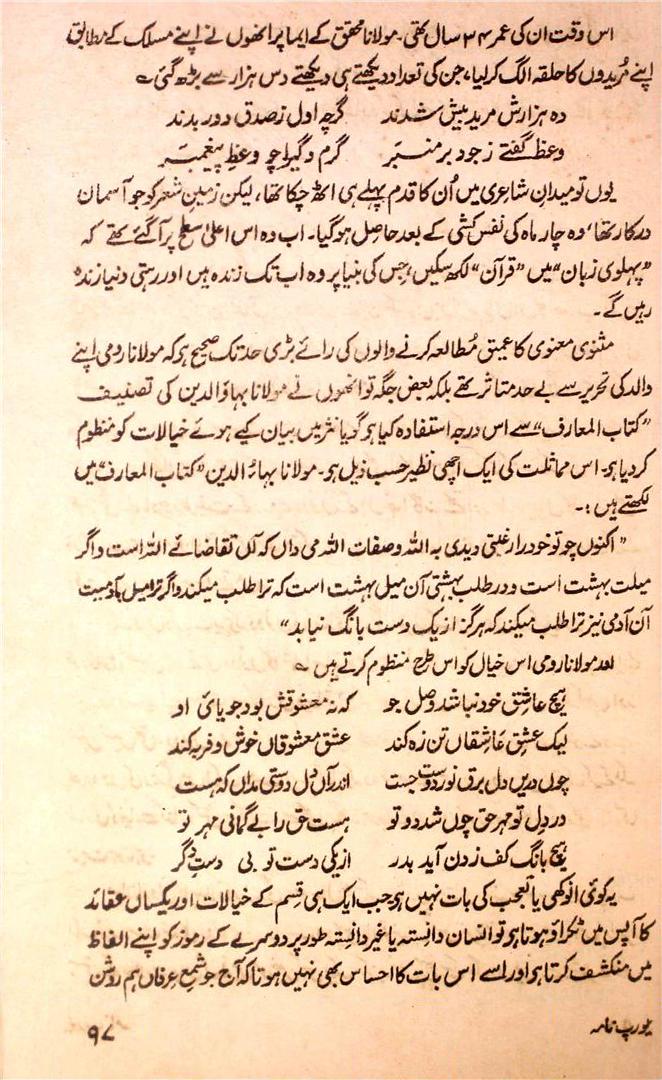 اس وقت ان کی عمر ۳۴ سال تھی۔ مولانا محقق کے ایما پر انھوں نے اپنے مسلک کے مطابق
اپنے مُریدوں کا حلقہ الگ کر لیا، جن کی تعداد دیکھتے ہی دیکھتے دس ہزار سے بڑھ گئی ؎
دہ ہزارش مرید بیش شدند گرچہ اول ز صدق دور بدند
وعظ گفتے ز جود بر منبَر گرم و گیرا چو وعظِ پیغمبَر
یوں تو میدانِ شاعری میں اُن کا قدم پہلے ہی اٹھ چکا تھا، لیکن زمینِ شعر کو جو آسمان
درکار تھا، وہ چار ماہ کی نفس کشی کے بعد حاصل ہو گیا۔ اب وہ اس اعلیٰ سطح پر آ گئے تھے کہ
”پہلوی زبان“ میں ”قرآن“ لکھ سکیں، جس کی بنیا پر وہ اب تک زندہ ہیں اور رہتی دنیا زندہ
رہیں گے۔
مثنوی معنوی کا عمیق مُطالعہ کرنے والوں کی رائے بڑی حد تک صحیح ہو کہ مولانا رومی اپنے
والد کی تحریر سے بے حد متاثر تھے بلکہ بعض جگہ تو انھوں نے مولانا بہاؤ الدین کی تصنیف
”کتاب المعارف“ سے اس درجہ استفادہ کیا ہو گویا نثر میں بیان کیے ہوئے خیالات کو منظوم
کر دیا ہو۔ اس مماثلت کی ایک اچھی نظیر حسب ذیل ہو۔ مولانا بہاءُ الدین ”کتاب المعارف“ میں
لکھتے ہیں :۔
”اکنوں چو تو خود را رغبتی دیدی بہ اللہ و صفات اللہ می داں کہ آں تقاضائے اللہ است و اگر
میلت بہشت است و در طلب بہشتی آن میل بہشت است کہ ترا طلب میکند و اگر ترا میل بآدمیست
آن آدمی نیز ترا طلب میکند کہ ہرگز از یک دست بانگ نیابد“
اور مولانا رومی اس خیال کو اس طرح منظوم کرتے ہیں ؎
ہیچ عاشق خود نباشد وصل جو کہ نہ معشوقش بود جویائ او
لیک عشق عاشقاں تن زہ کند عشق معشوقاں خوش و فربہ کند
چوں دریں دل برق نور دوست جست اندراں دل دوستی مداں کہ ہست
در دل تو مہر حق چوں شد دو تو ہست حق را بے گمانی مہر تو
ہیچ بانگ کف زدن آید بدر از یکی دست تو بی دستِ دگر
یہ کوئی انوکھی یا تعجب کی بات نہیں ہو جب ایک ہی قسم کے خیالات اور یکساں عقائد
کا آپس میں ٹکراؤ ہوتا ہو تو انسان دانستہ یا غیر دانستہ طور پر دوسرے کے رموز کو اپنے الفاظ
میں منکشف کرتا ہو اور اسے اس بات کا احساس بھی نہیں ہوتا کہ آج جو شمعِ عرفاں ہم روشن
یورپ نامہ
۹۷